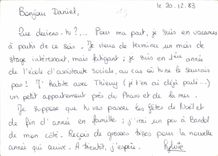 le 20.12.83
Bonjour Daniel,
Que deviens-tu ?... Pour ma part, je suis en vacances
à partir de ce soir. Je viens de terminer un mois de
stage intéressant, mais fatigant ; je suis en 1ère année
de l'école d'assistante sociale, au cas où tu ne le saurais
pas ! J'habite avec Thierry (j't'en ai déjà parlé ...)
un petit appartement près du Pharo et de la mer.
Je suppose que tu vas passer les fêtes de Noël et
de fin d'année en famille ; j'irai un peu à Bandol
de mon côté. Reçois de grosses bises pour la nouvelle
année qui arrive. A bientôt, j'espère.
Sylvie